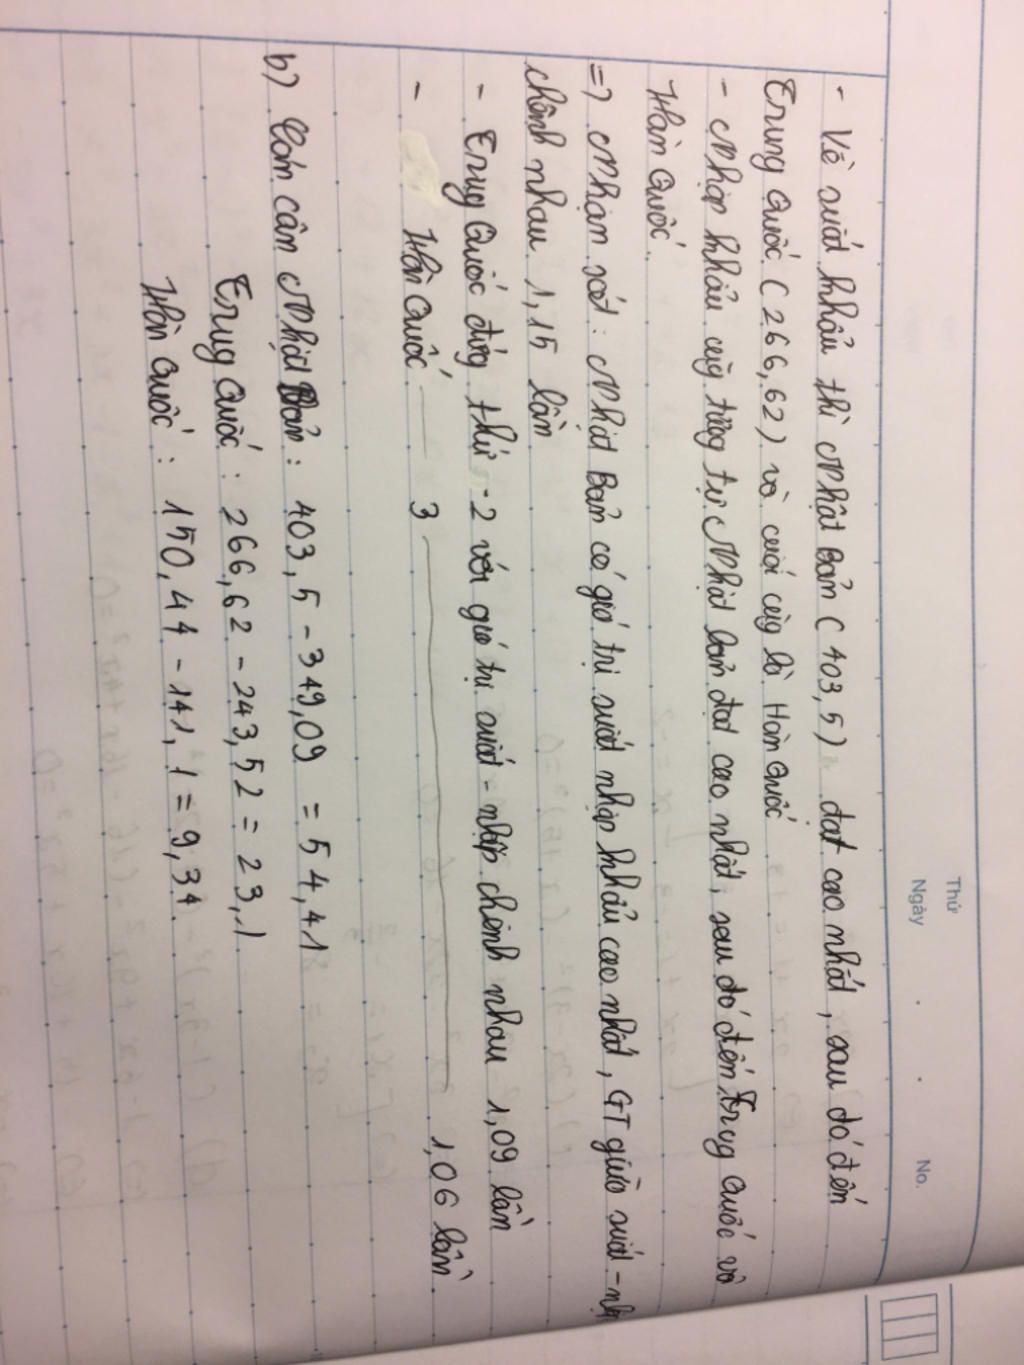 Thứ
Ngày . .
No.
- Về xuất khẩu thì Nhật Bản (403,5) đạt cao nhất, sau đó đến
Trung Quốc (266,62) và cuối cùng là Hàn Quốc
- Nhập khẩu cũg tươg tự Nhật bản đạt cao nhất, sau đó đến Trug Quốc và
Hàn Quốc.
=> Nhận xét: Nhật Bản có giá trị xuất nhập khẩu cao nhất, GT giữa xuất - nh
chênh nhau 1,15 lần
- Trug Quốc đứg thứ 2 với giá trị xuất - nhập chênh nhau 1,09 lần
- Hàn Quốc 3 1,06 lần.
b) Cán cân Nhật Bản: 403,5 - 349,09 = 54,41
Trug Quốc: 266,62 - 243,52 = 23,1
Hàn Quốc: 150,44 - 141,1 = 9,34